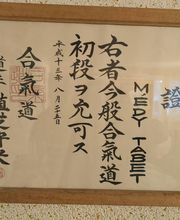 證
MEDY TABET
右者今般合氣道
初段ヲ允可ス
平成十三年 八月二五日
合氣道
植芝